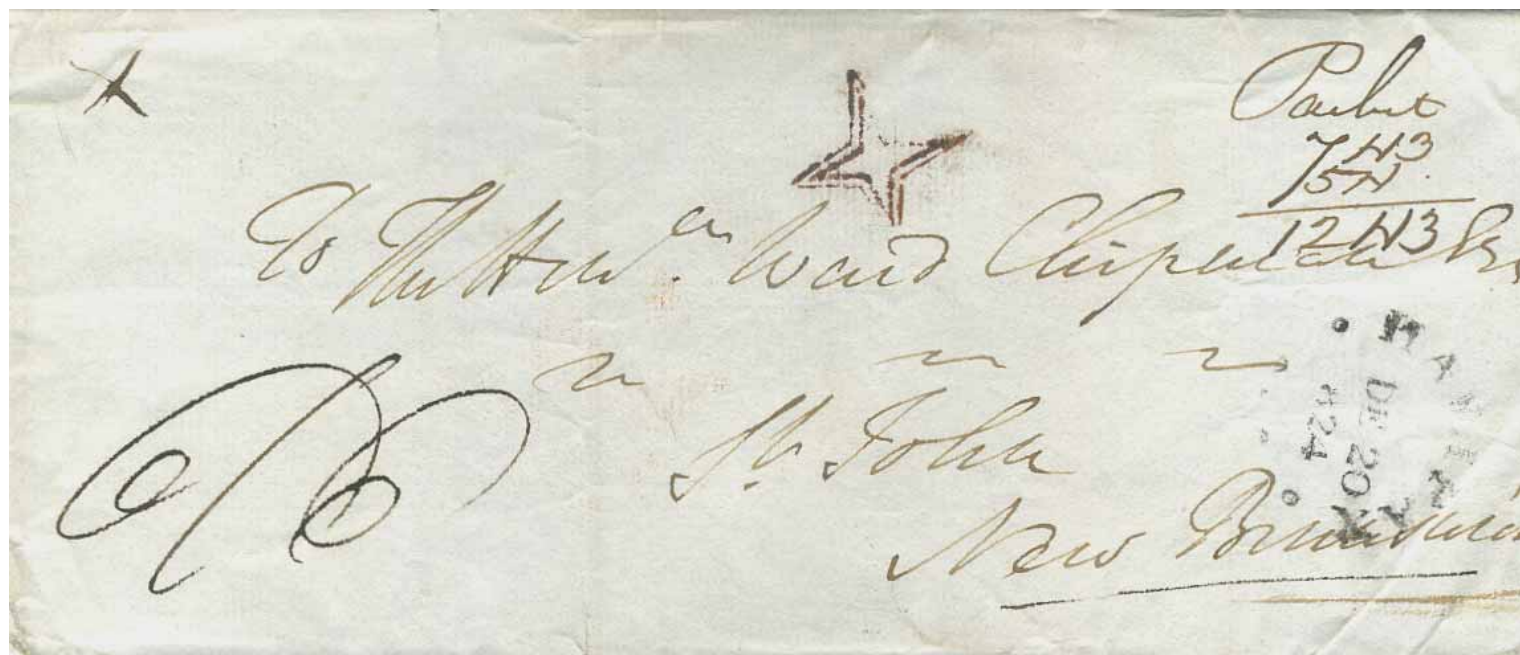 Packet
7N3
5N
12N3
To The Honble. Ward Chipman
St. John
New Brunswick
HALIFAX
DE 20
824